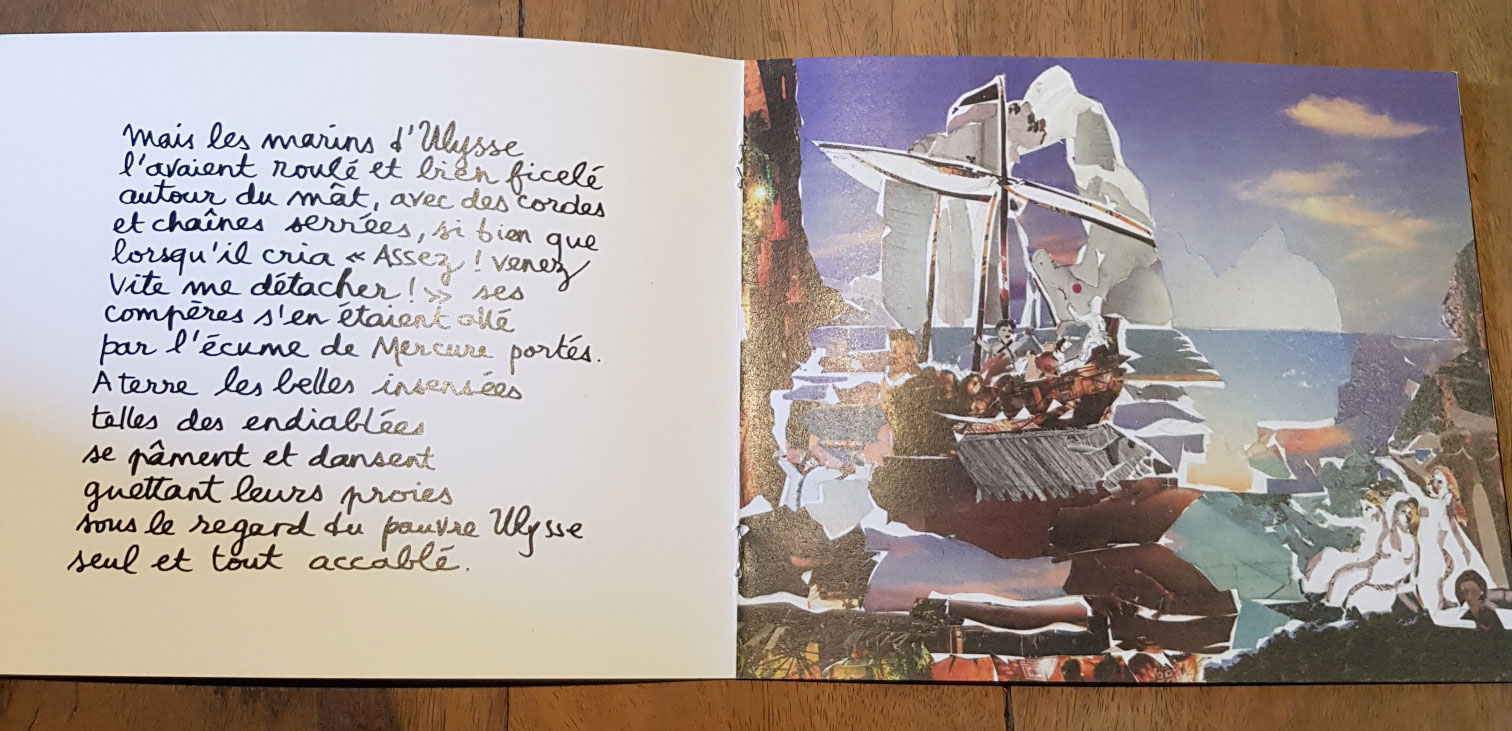 Mais les marins d'Ulysse
l'avaient roulé et bien ficelé
autour du mât, avec des cordes
et chaînes serrées, si bien que
lorsqu'il cria « Assez ! venez
vite me détacher ! » ses
compères s'en étaient allé
par l'écume de Mercure portés.
A terre les belles insensées
telles des endiablées
se pâment et dansent
guettant leurs proies
sous le regard du pauvre Ulysse
seul et tout accablé.